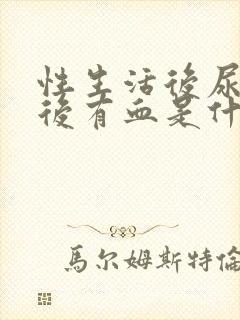 性生活後尿
後有血是什
馬尔姆斯特倫